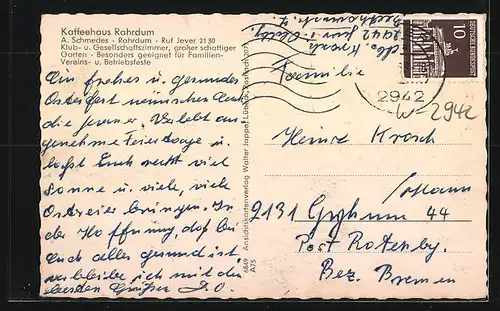 Kaffeehaus Rahrdum
A. Schmedes · Rahrdum · Ruf Jever 2130
Klub- u. Gesellschaftszimmer, großer schattiger
Garten · Besonders geeignet für Familien-
Vereins- u. Betriebsfeste
Ein frohes u. gesundes
Osterfest wünschen Euch
die Jeverer. Verlebt an-
genehme Feiertage u.
laßt Euch recht viel
Sonne u. viele, viele
Ostereier bringen. In
der Hoffnung, daß bei
Euch alles gesund ist,
verbleibe ich mit den
besten Grüßen
Ansichtskartenverlag Walter Jappe, Lübeck
6849
A75
2942
10
DEUTSCHE BUNDESPOST
2942
W-2942
Familie
Heinz Krosch
2131 44
Post Rotenbg.
Bez. Bremen